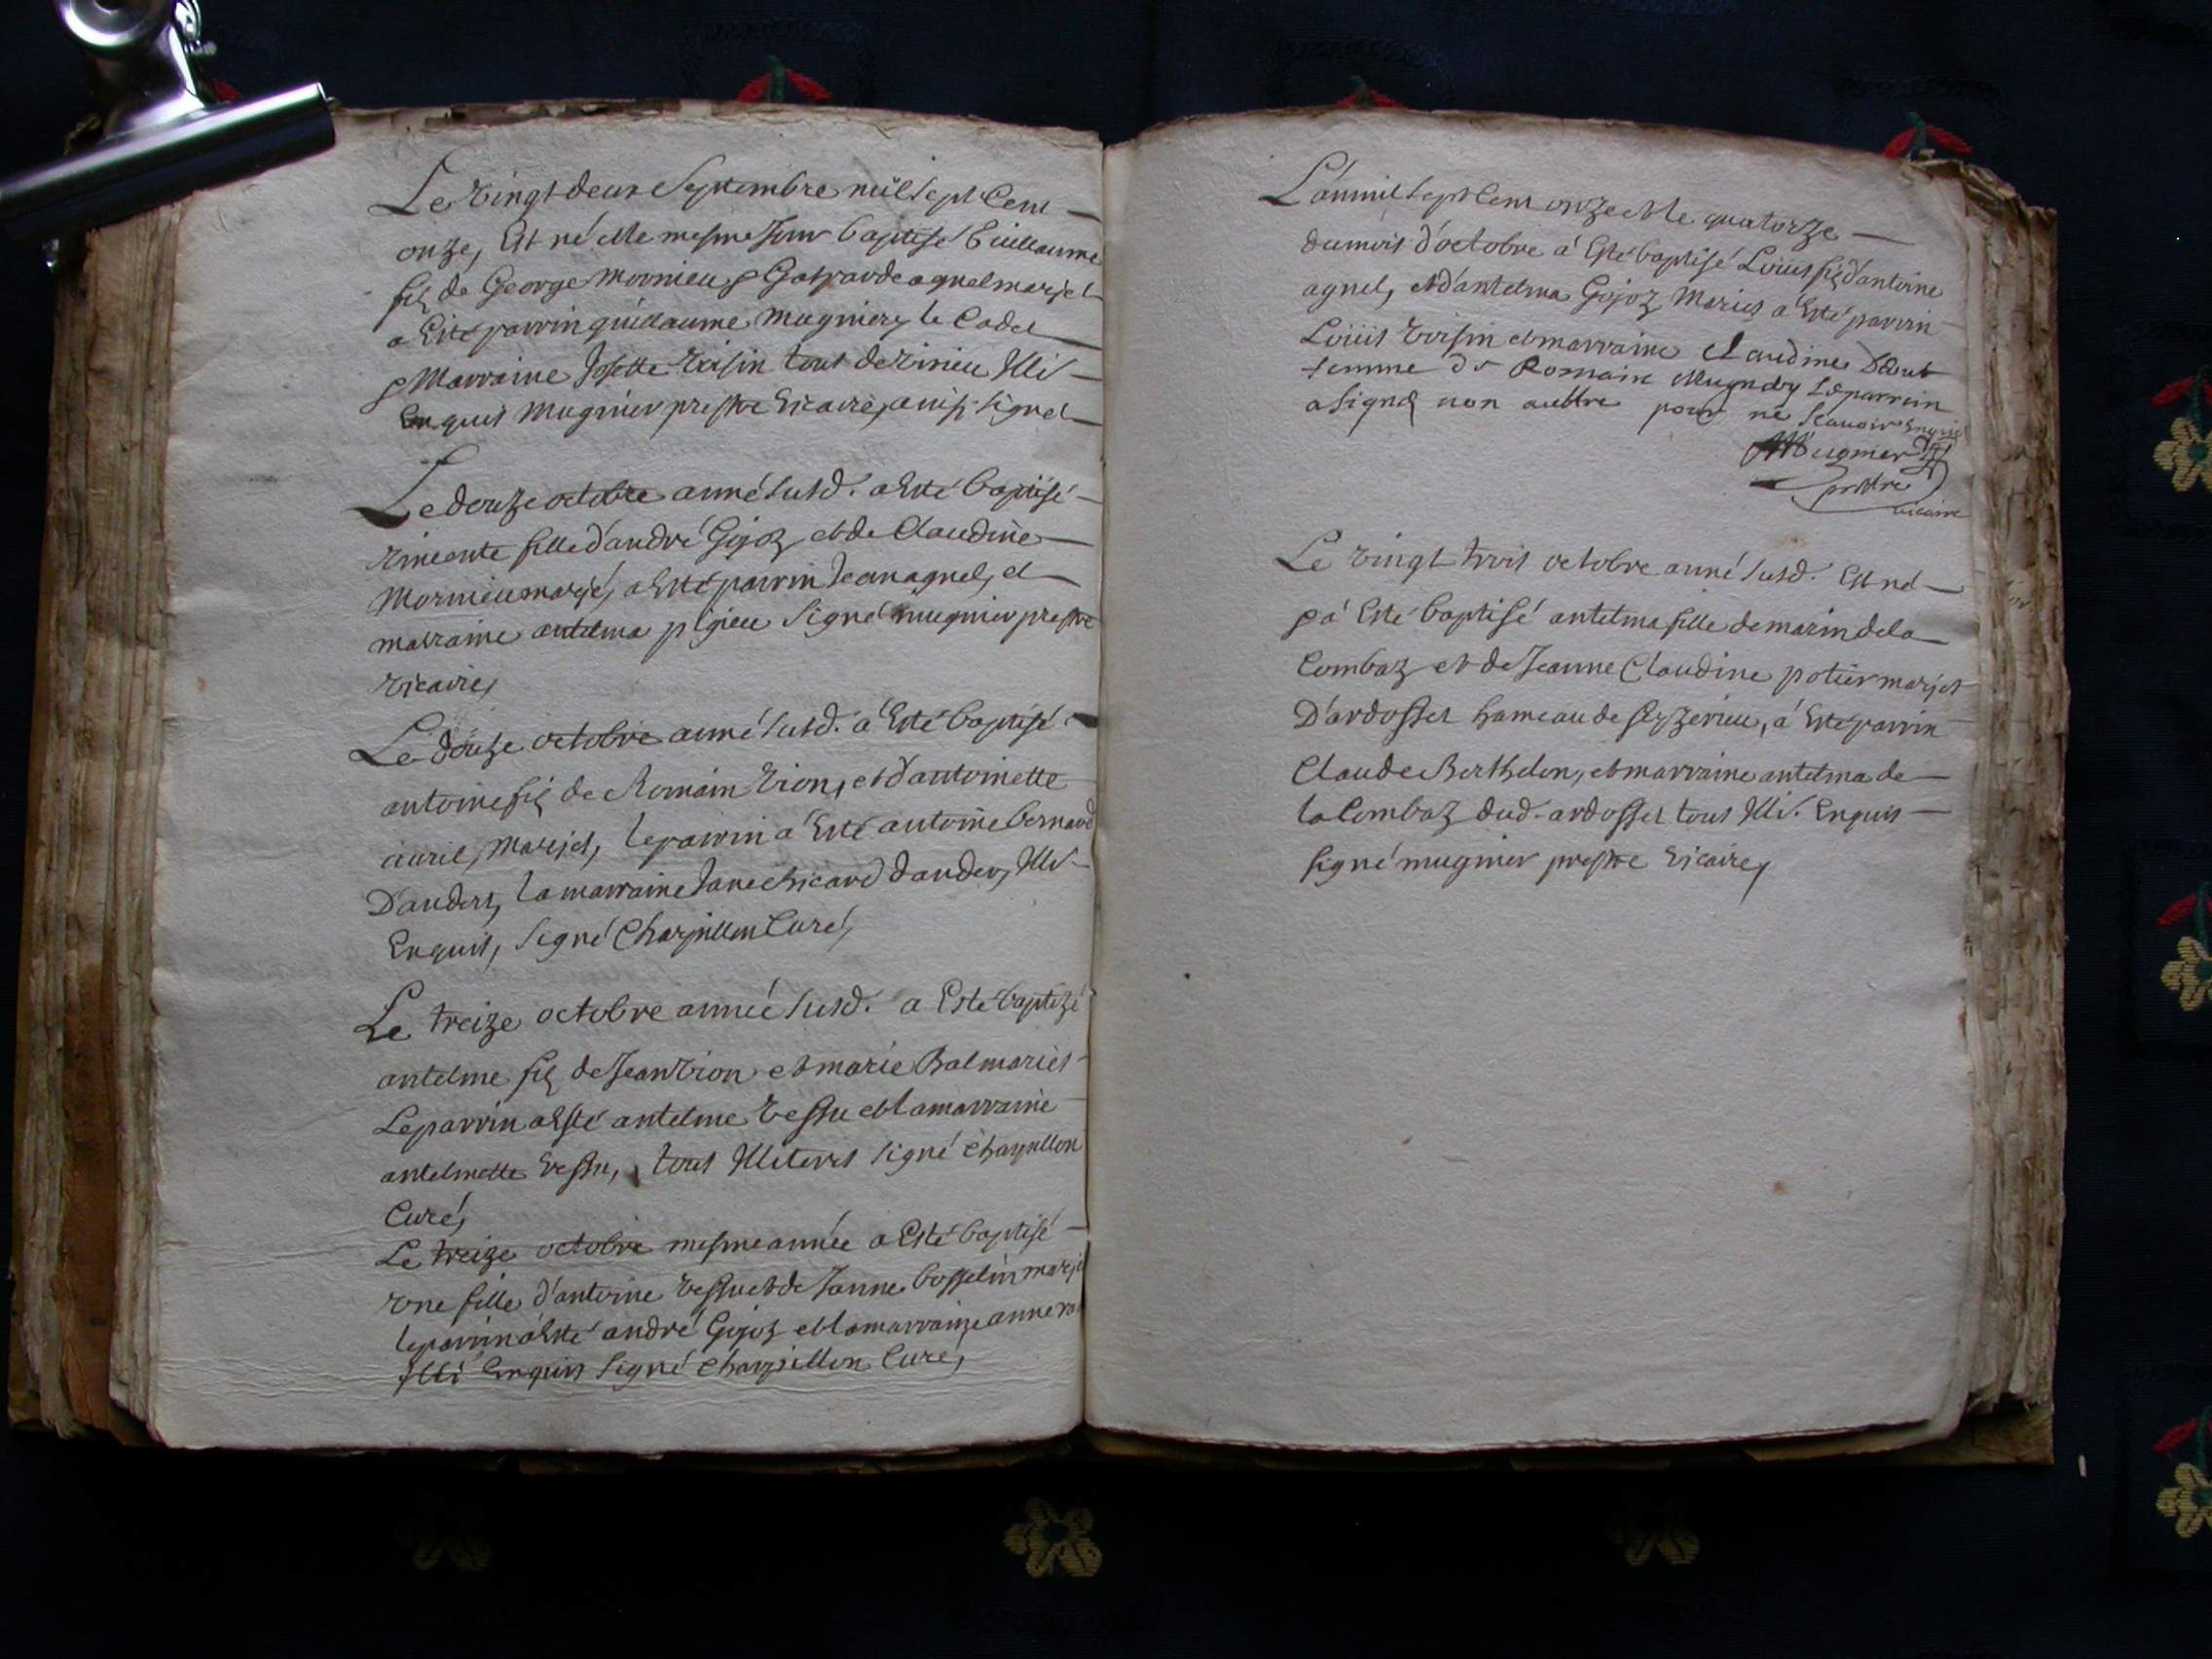 Le vingt deux Septembre mil sept Cent
onze, Est né et le mesme Jour baptisé Guillaume
fils de George mornieu & Gasparde agnel mariet
a Esté parrin guillaume mugniery le Cadet
& Marraine Josette voisin tous de virieu Illi
Enquis Mugnier prestre vicaire, ainsi signet
Le douze octobre anné susd. a Esté baptisé
vincente fille d'andré Gojoz et de Claudine
Mornieu marié, a Esté parrin Jean agnel, et
marraine antelma pugieu signé mugnier prestre
vicaire,
Le douze octobre anné susd. a Esté baptisé
antoine fils de Romain vion, et d'antoinette
auril, mariet, le parrin a Esté antoine bernard
D'andert, la marraine Jane chicard dander, Illi
Enquis, signé Charpillon Curé,
Le treize octobre anneé susd. a Esté baptizé
antelme fils de Jean vion et marie Bal mariés
Le parrin a Esté antelme vessu et la marraine
antelmette vessu, tous Illiterés signé Charpillon
Curé,
Le treize octobre mesme année a Esté baptisé
vne fille d'antoine vessu et de Janne bosselin marje
le parrin a Esté andré Gojoz et la marraine anne
Illi Enquis signé Charpillon Curé,
L'an mil sept Cent onze et le quatorze
du mois d'octobre á Esté baptisé Loüis fils d'antoine
agnel, et d'antelma Gojoz Mariés a Esté parrin
Loüis voisin et marraine Claudine
femme de Romain Mugniery Le parrein
a signé non aultre pour ne scauoir Enquis
Mugnier
prestre
vicaire
Le vingt trois octobre anné susd. Est né
& á Esté baptisé antelma fille de marin dela
Combaz et de Jeanne Claudine potier mariet
D'ardosset hameau de seyzerieu, á Esté parrin
Claude Berthelon, et marraine antelma de
la Combaz dud. ardosset tous Illi. Enquis
signé mugnier prestre vicaire,